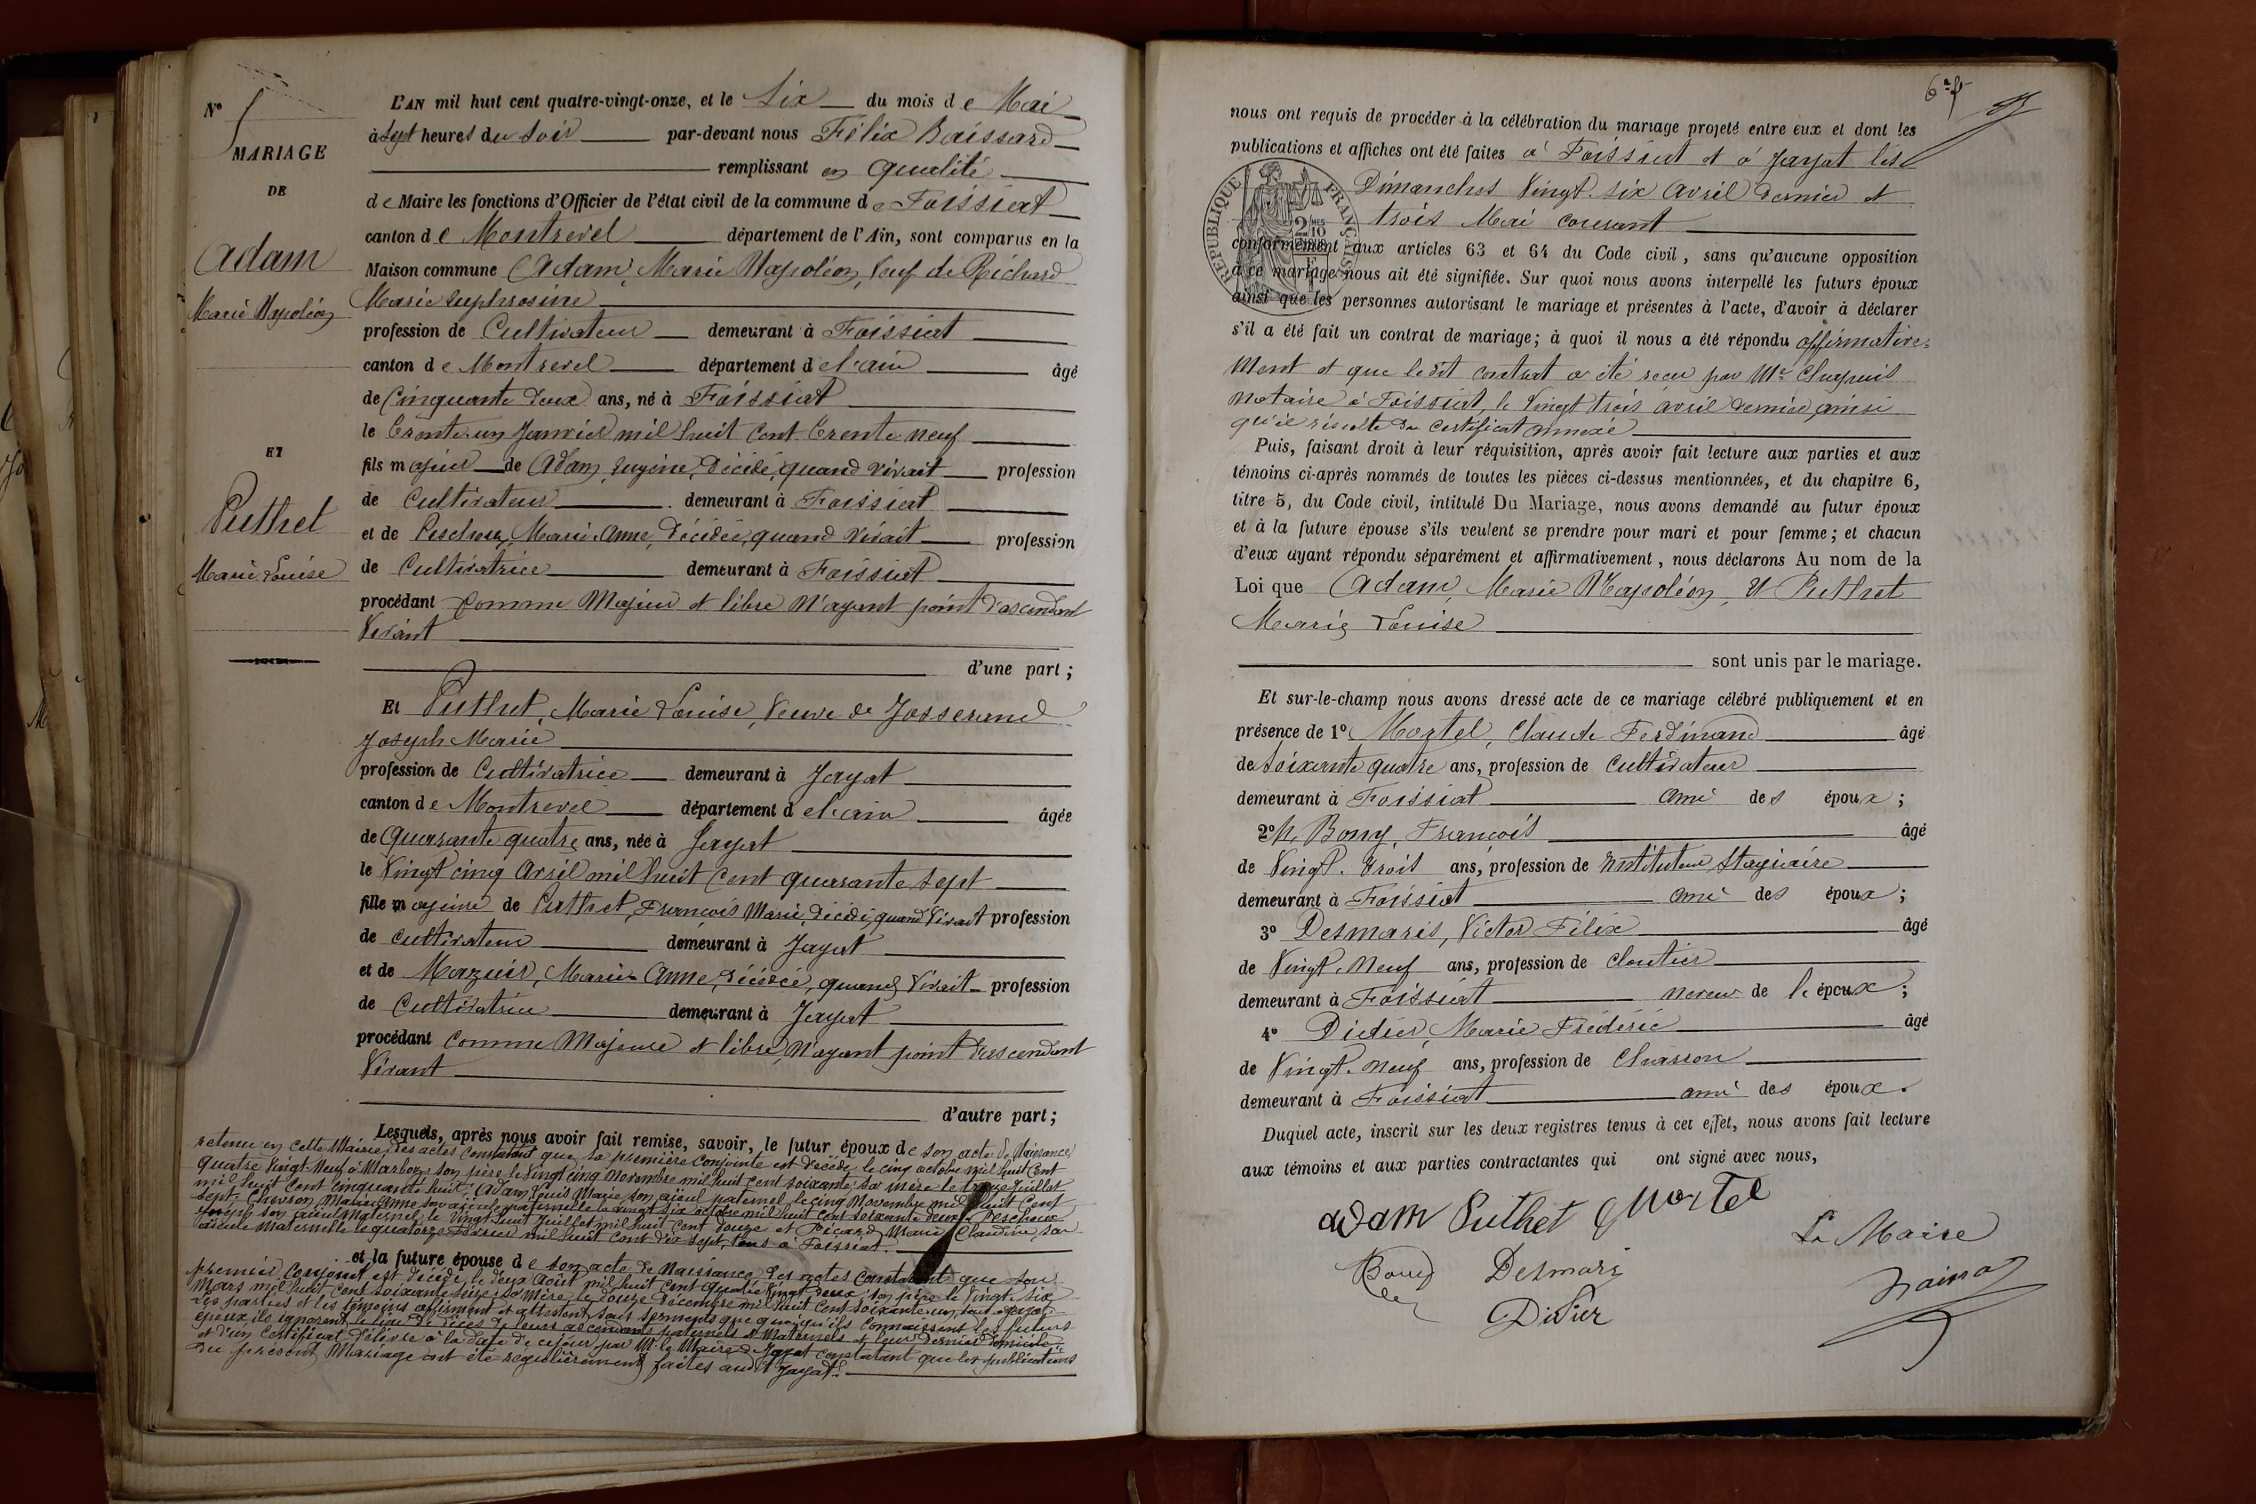 N° 5
MARIAGE
DE
Adam
Marie Napoléon
ET
Puthet
Marie Louise
L'AN mil huit cent quatre-vingt-onze, et le Six du mois de Mai
à Sept heures du Soir par-devant nous Félix
remplissant en qualité
de Maire les fonctions d'Officier de l'état civil de la commune de Foissiat
canton de Montrevel département de l'Ain, sont comparus en la
Maison commune Adam, Marie Napoléon, Veuf de Richard
Marie Euphrosine
profession de Cultivateur demeurant à Foissiat
canton de Montrevel département de l'ain âgé
de Cinquante deux ans, né à Foissiat
le trente-un Janvier mil huit cent trente neuf
fils majeur de Adam, Eugène, décédé, quand vivait profession
de Cultivateur demeurant à Foissiat
et de Marie Anne, décédée, quand vivait profession
de Cultivatrice demeurant à Foissiat
procédant Comme Majeur et libre N'ayant point d'ascendant
Vivant
d'une part ;
Et Puthet, Marie Louise, Veuve de Josserand
Joseph Marie
profession de Cultivatrice demeurant à Jayat
canton de Montrevel département de l'ain âgée
de Quarante quatre ans, née à Jayat
le Vingt cinq Avril mil huit cent quarante sept
fille majeure de Puthet, François Marie, décédé, quand Vivait profession
de Cultivateur demeurant à Jayat
et de Mazuir, Marie Anne, décédée, quand Vivait profession
de Cultivatrice demeurant à Jayat
procédant Comme Majeure et libre, N'ayant point d'ascendant
Vivant
d'autre part ;
Lesquels, après nous avoir fait remise, savoir, le futur époux de son acte de Naissance
retenu en cette Mairie, des actes constatant que sa première conjointe est décédée le cinq octobre mil huit cent
quatre Vingt Neuf à Marboz, son père le Vingt cinq Novembre mil huit cent soixante, sa mère le treize Juillet
mil huit cent cinquante huit, Adam Louis Marie son aïeul paternel, le cinq Novembre mil huit cent
sept, Marie Anne son aïeule paternelle le vingt six octobre mil huit cent soixante deux
son aïeul Maternel, le Vingt huit Juillet mil huit cent douze et Marie Claudine, son
aïeule Maternelle le quatorze Février mil huit cent dix sept, tous à Foissiat.
et la future épouse de son acte de Naissance, des actes constatant que son
premier Conjoint est décédé le deux Août mil huit cent quatre Vingt deux, son père le Vingt six
Mars mil huit cent soixante seize, sa Mère le douze Décembre mil huit cent soixante un, tous à Jayat.
Les parties et les témoins affirment et attestent sous serments que quoiqu'ils connaissent les futurs
époux, ils ignorent le lieu de décès de leurs ascendants paternels et Maternels et leur dernier domicile
et d'un Certificat délivré à la date de ce jour par Mr le Maire de Jayat constatant que les publications
du présent Mariage ont été régulièrement faites audit Jayat.
6e f
nous ont requis de procéder à la célébration du mariage projeté entre eux et dont les
publications et affiches ont été faites à Foissiat et à Jayat les
Dimanches Vingt-six Avril dernier et
trois Mai courant
RÉPUBLIQUE FRANÇAISE
conformément aux articles 63 et 64 du Code civil, sans qu'aucune opposition
à ce mariage nous ait été signifiée. Sur quoi nous avons interpellé les futurs époux
ainsi que les personnes autorisant le mariage et présentes à l'acte, d'avoir à déclarer
s'il a été fait un contrat de mariage ; à quoi il nous a été répondu affirmative-
ment et que ledit contrat a été reçu par Me Chapuis
Notaire à Foissiat, le Vingt trois avril dernier, ainsi
qu'il résulte du Certificat annexé
Puis, faisant droit à leur réquisition, après avoir fait lecture aux parties et aux
témoins ci-après nommés de toutes les pièces ci-dessus mentionnées, et du chapitre 6,
titre 5, du Code civil, intitulé Du Mariage, nous avons demandé au futur époux
et à la future épouse s'ils veulent se prendre pour mari et pour femme ; et chacun
d'eux ayant répondu séparément et affirmativement, nous déclarons Au nom de la
Loi que Adam, Marie Napoléon, Et Puthet
Marie Louise
sont unis par le mariage.
Et sur-le-champ nous avons dressé acte de ce mariage célébré publiquement et en
présence de 1° Mortel, Claude Ferdinand âgé
de Soixante quatre ans, profession de Cultivateur
demeurant à Foissiat ami des époux ;
2° Bony, François âgé
de Vingt-trois ans, profession de Instituteur Stagiaire
demeurant à Foissiat ami des époux ;
3° Desmaris, Victor Félix âgé
de Vingt-Neuf ans, profession de Cloutier
demeurant à Foissiat neveu de l'époux ;
4° Didier, Marie Frédéric âgé
de Vingt-Neuf ans, profession de
demeurant à Foissiat ami des époux.
Duquel acte, inscrit sur les deux registres tenus à cet effet, nous avons fait lecture
aux témoins et aux parties contractantes qui ont signé avec nous,
Adam Puthet Mortel
Le Maire
Bony Desmaris
Didier